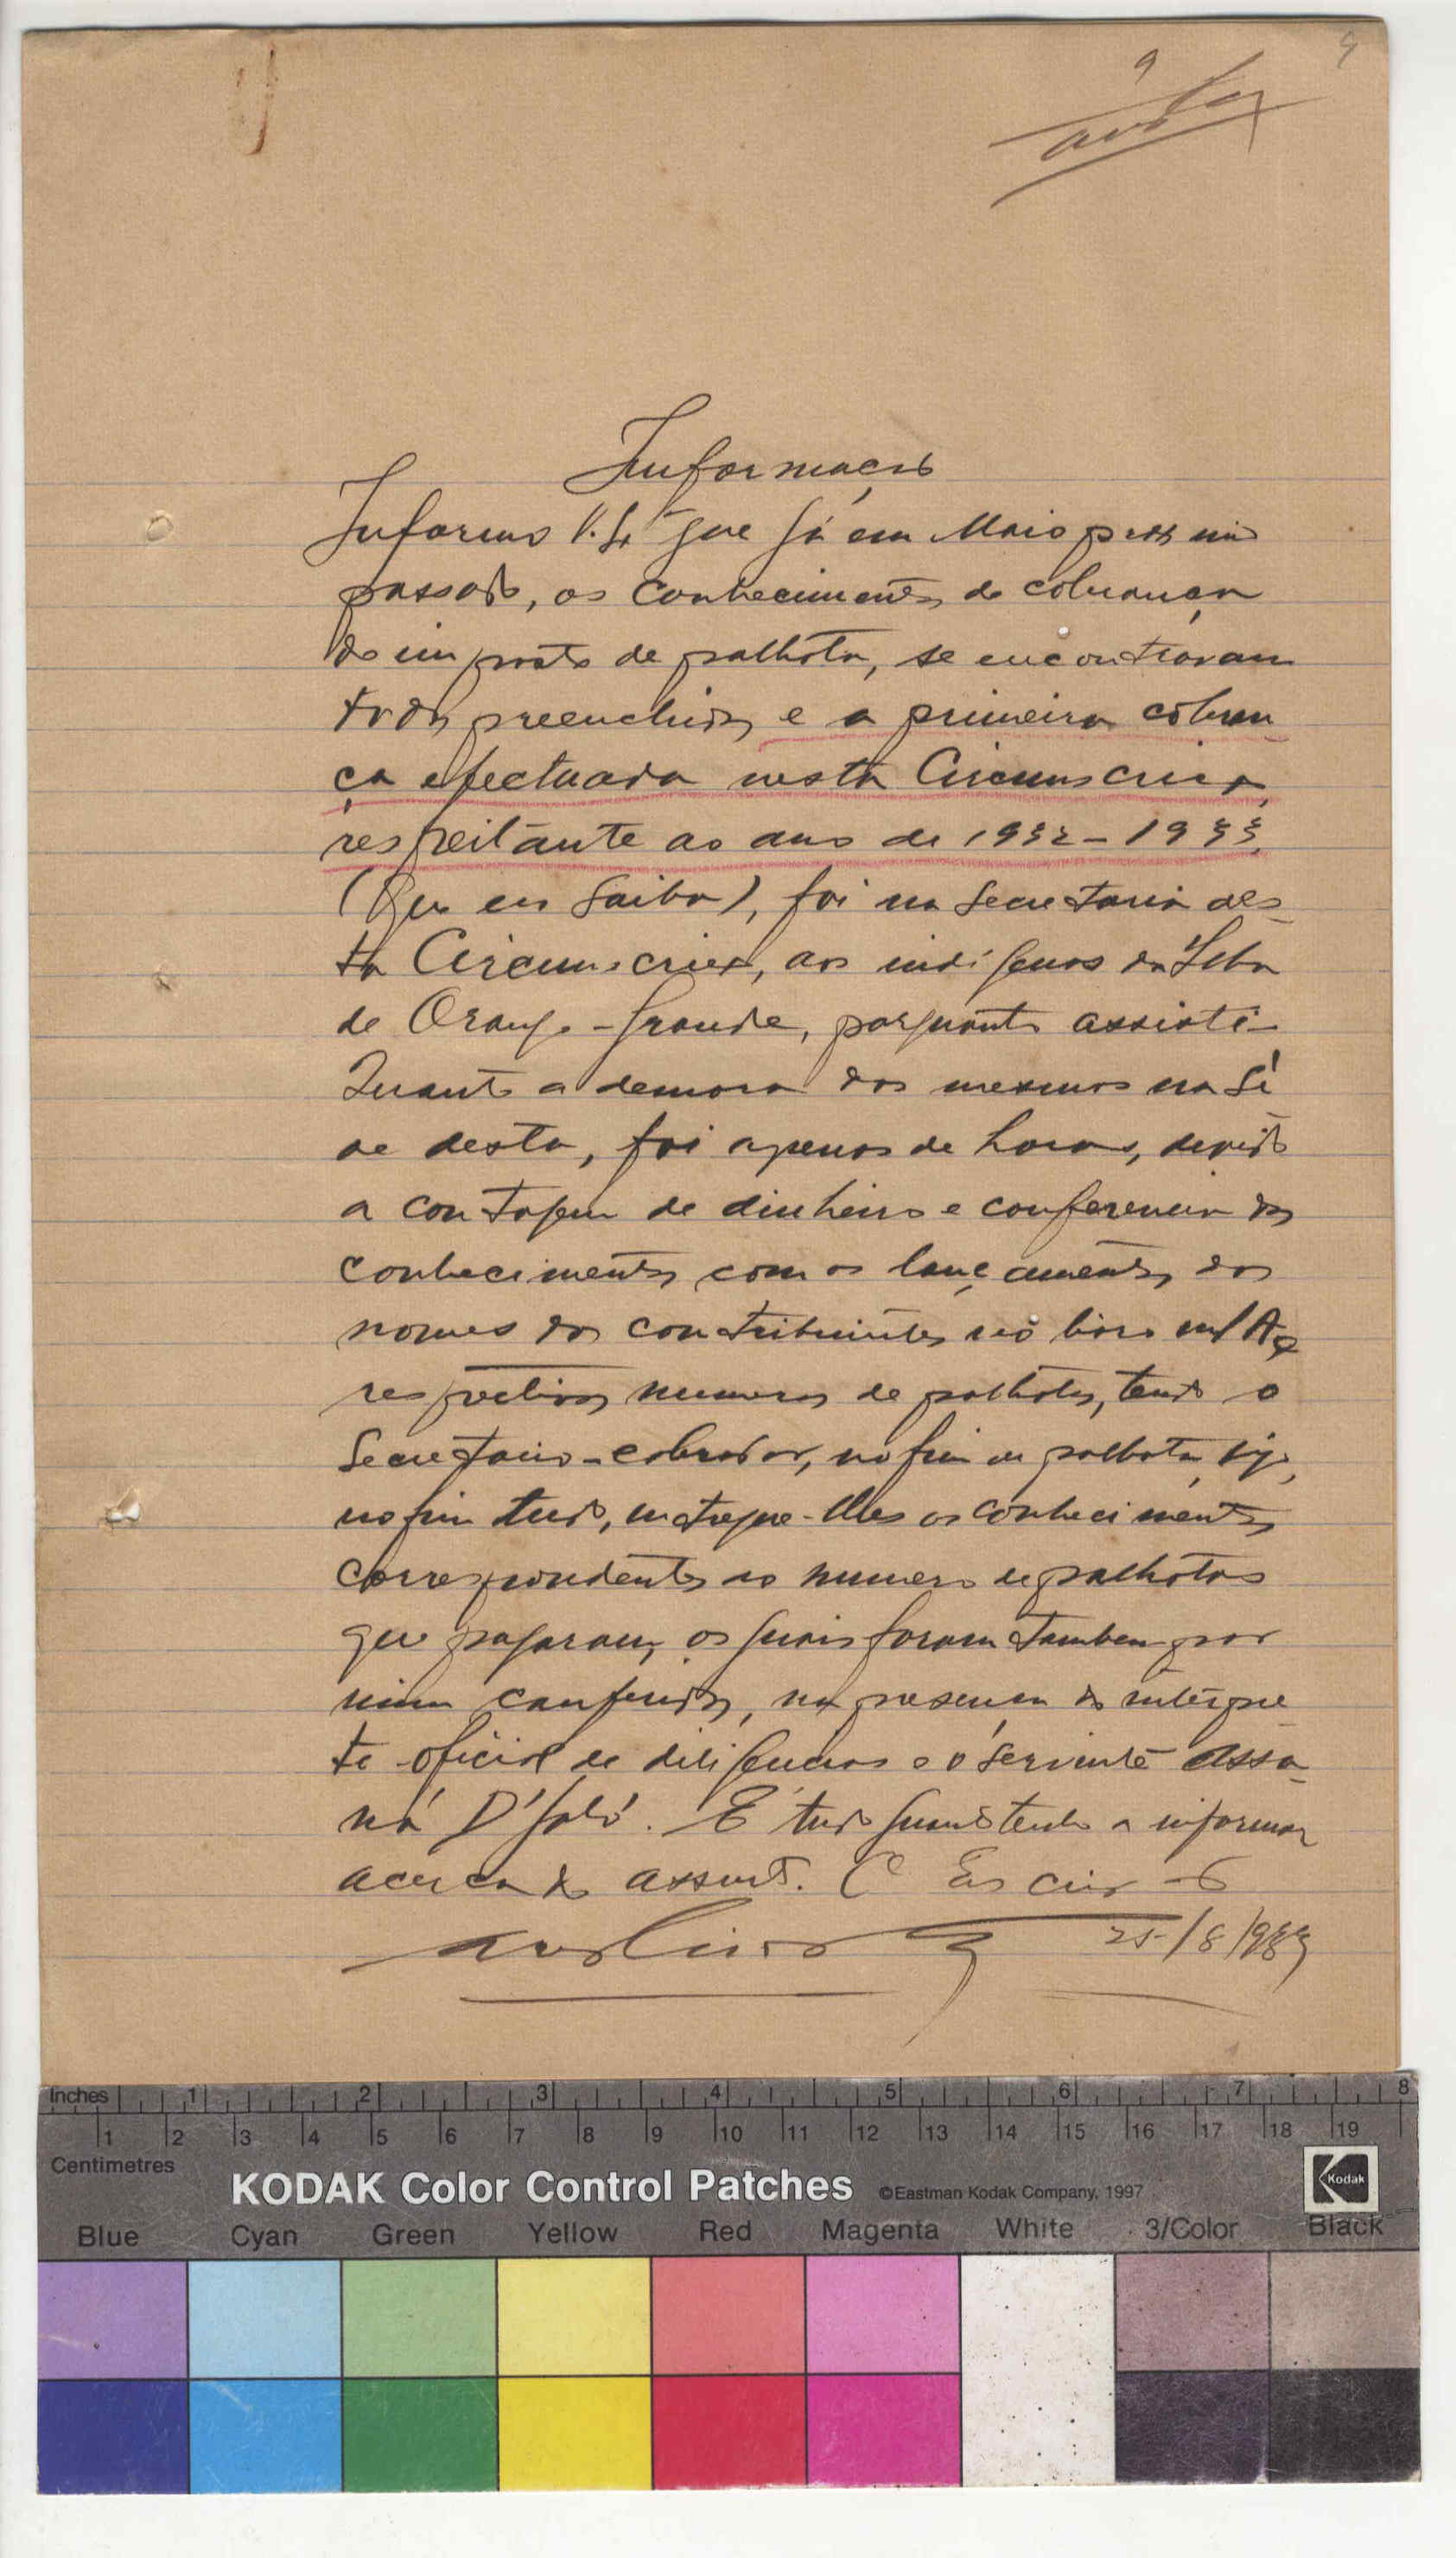 9
9
Informação
Informo V. Sª que já em Maio
passado, os conhecimentos de cobrança
do imposto de palhota, se encontravam
todos preenchidos e a primeira cobran
ça efectuada nesta Circunscrição,
respeitante ao ano de 1932-1933,
(Que eu saiba), foi na Secretaria des
ta Circunscrição, aos indigenas da
de Grande, porquanto assisti-
Quanto a demora dos mesmos na Sé
de desta, foi apenas de horas, devido
a contagem de dinheiro e conferencia dos
conhecimentos com os lançamentos dos
nomes dos contribuintes no livro
respectivos numeros de palhotas, tendo o
Secretario-cobrador, no fim de palhota, digo,
no fim tudo, entregue-lhes os conhecimentos
correspondentes ao numero de palhotas
que pagaram, os quais foram tambem por
mim conferidos, na presença do intérpre
te oficial de diligencias e o servente Assa-
ná. É tudo quanto tenho a informar
acerca do assunto. O
25/8/933
Inches 1 2 3 4 5 6 7 8
1 2 3 4 5 6 7 8 9 10 11 12 13 14 15 16 17 18 19
Centimetres
KODAK Color Control Patches ©Eastman Kodak Company, 1997 Kodak
Blue Cyan Green Yellow Red Magenta White 3/Color Black